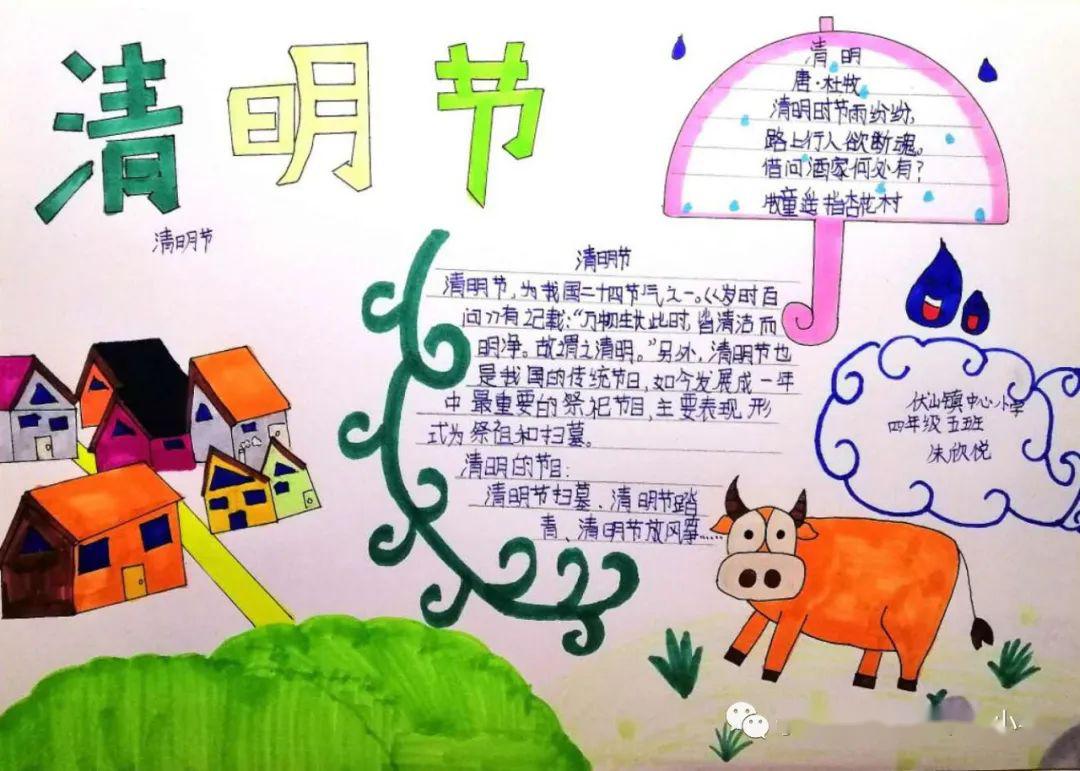 清明节
清明节
清明
唐·杜牧
清明时节雨纷纷,
路上行人欲断魂。
借问酒家何处有?
牧童遥指杏花村
清明节
清明节,为我国二十四节气之一。《岁时百
问》有记载:“万物生长此时,皆清洁而
明净。故谓之清明。”另外,清明节也
是我国的传统节日,如今发展成一年
中最重要的祭祀节日,主要表现形
式为祭祖和扫墓。
清明的节目:
清明节扫墓、清明节踏
青、清明节放风筝……
伏山镇中心小学
四年级五班
朱欣悦
小